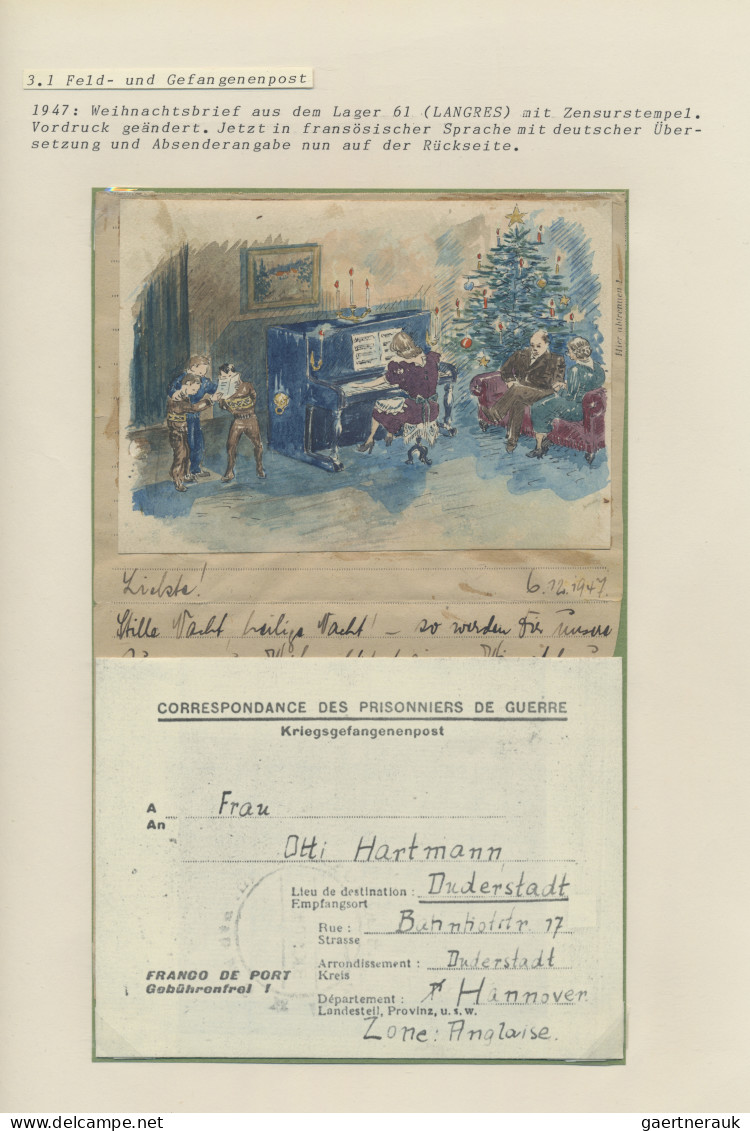 3.1 Feld- und Gefangenenpost
1947: Weihnachtsbrief aus dem Lager 61 (LANGRES) mit Zensurstempel.
Vordruck geändert. Jetzt in fransösischer Sprache mit deutscher Über-
setzung und Absenderangabe nun auf der Rückseite.
Hier abtrennen
Liebste! 6.12.1947.
Stille Nacht, heilige Nacht! – so werden Dir unsere
CORRESPONDANCE DES PRISONNIERS DE GUERRE
Kriegsgefangenenpost
A Frau
An
Otti Hartmann,
Lieu de destination: Duderstadt
Empfangsort
Rue: Bahnhofstr 17
Strasse
Arrondissement: Duderstadt
Kreis
FRANCO DE PORT
Gebührenfrei !
Département: Hannover
Landesteil, Provinz, u.s.w.
Zone: Anglaise.
gaertnerauk